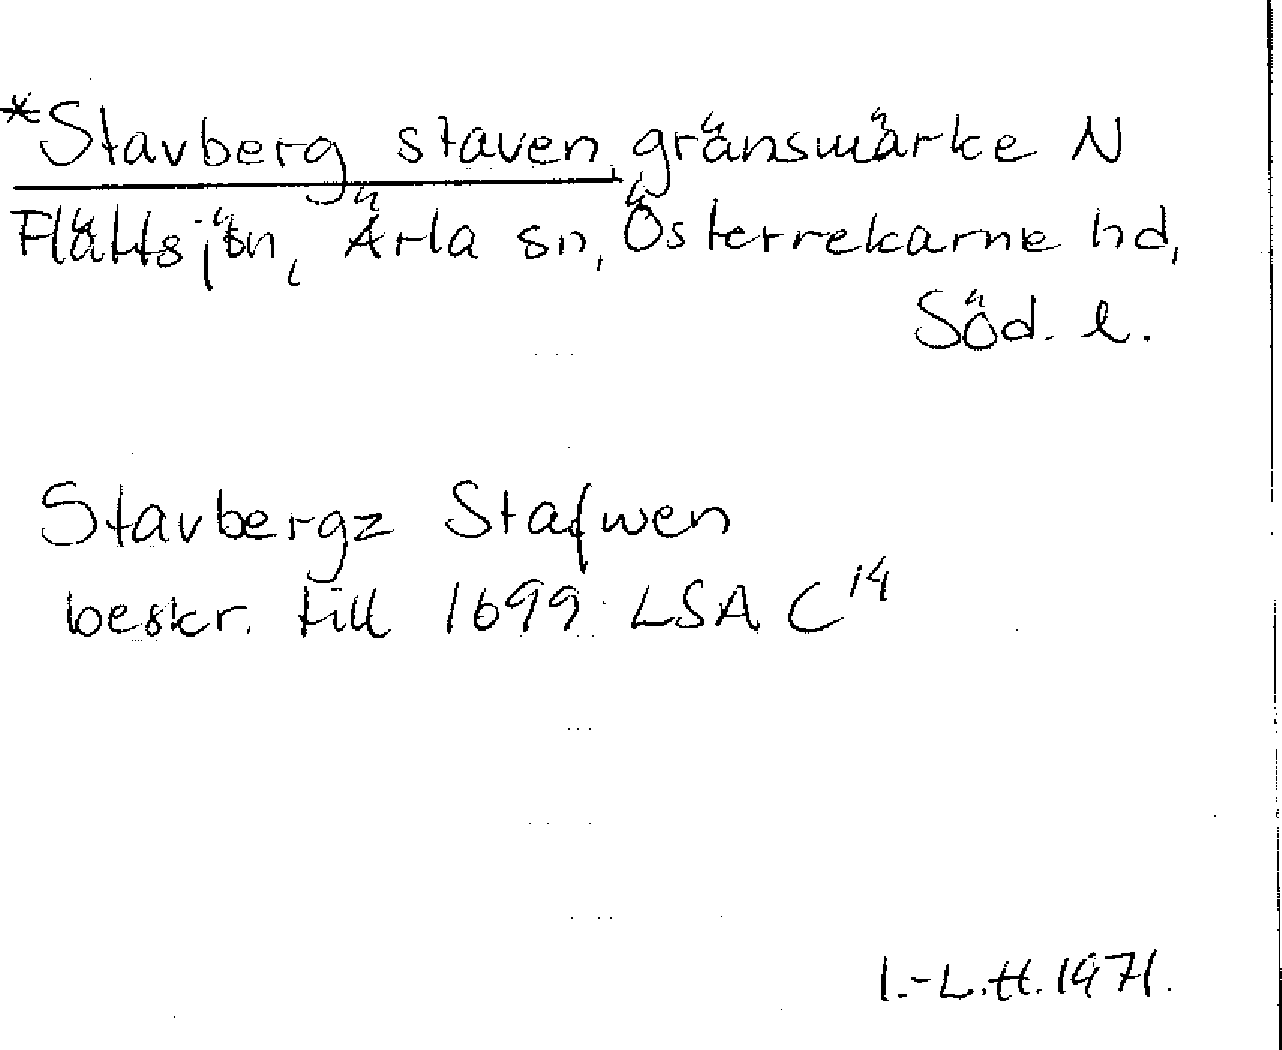 *Stavberg staven, gränsmärke N
Flättsjön, Ärla sn, Österrekarne hd,
Söd. l.
Stavbergz Stafwen
beskr. till 1699 LSA C14
I.-L.H. 1971.